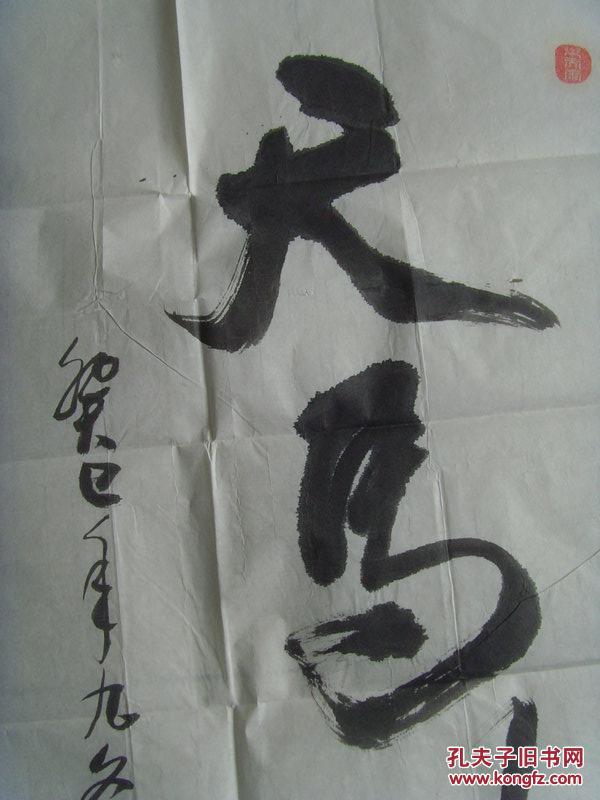 天马
癸巳年九
孔夫子旧书网
www.kongfz.com